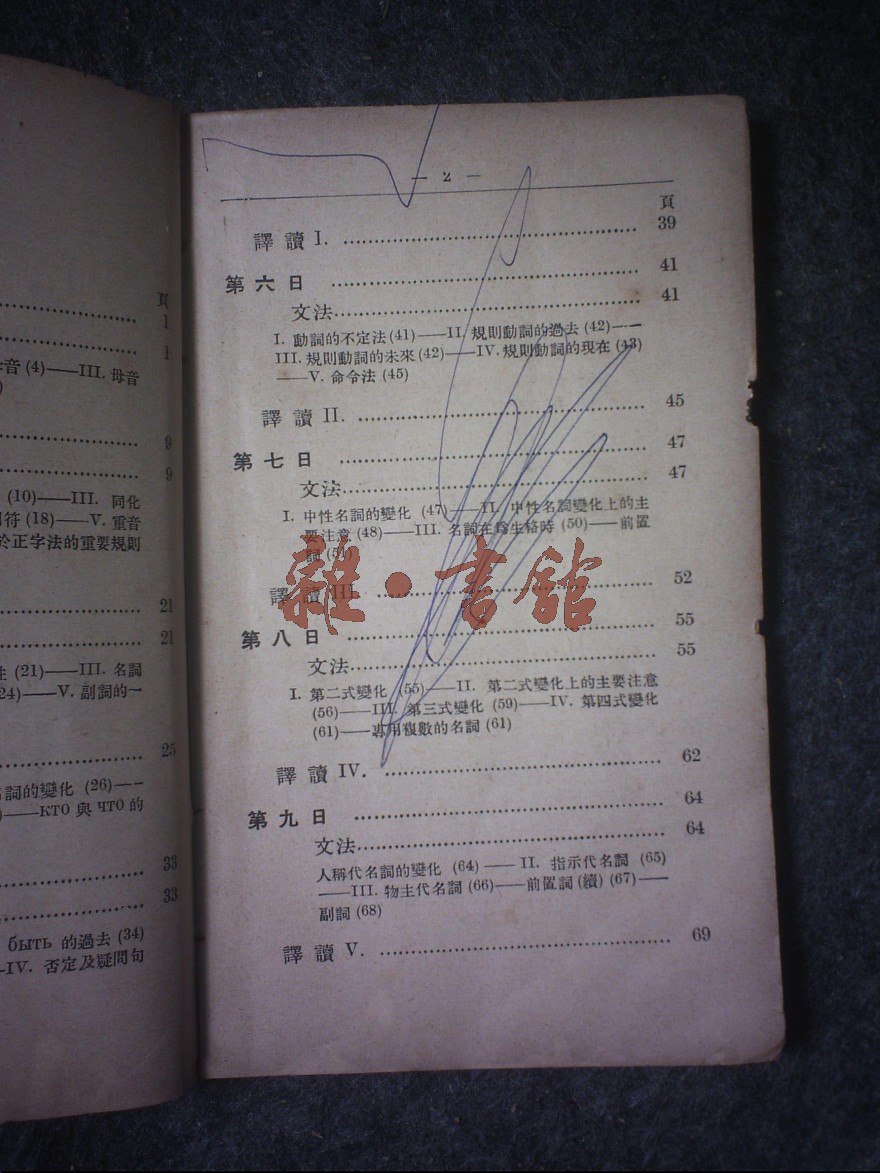 頁
1
1
音 (4)——III. 母音
)
9
9
(10)——III. 同化
符 (18)——V. 重音
於正字法的重要規則
21
21
(21)——III. 名詞
24)——V. 副詞的一
25
詞的變化 (26)——
)——КТО 與 ЧТО 的
33
33
быть 的過去 (34)
–IV. 否定及疑問句
— 2 —
頁
譯讀 I. 39
第六日 41
文法 41
I. 動詞的不定法 (41)——II. 規則動詞的過去 (42)——
III. 規則動詞的未來 (42)——IV. 規則動詞的現在 (43)
——V. 命令法 (45)
譯讀 II. 45
第七日 47
文法 47
I. 中性名詞的變化 (47)——II. 中性名詞變化上的主
要注意 (48)——III. 名詞在爲生格時 (50)——前置
詞 (51)
譯讀 III. 52
雜·書館
第八日 55
文法 55
I. 第二式變化 (55)——II. 第二式變化上的主要注意
(56)——III. 第三式變化 (59)——IV. 第四式變化
(61)——專用複數的名詞 (61)
譯讀 IV. 62
第九日 64
文法 64
人稱代名詞的變化 (64)——II. 指示代名詞 (65)
——III. 物主代名詞 (66)——前置詞(續) (67)——
副詞 (68)
譯讀 V. 69